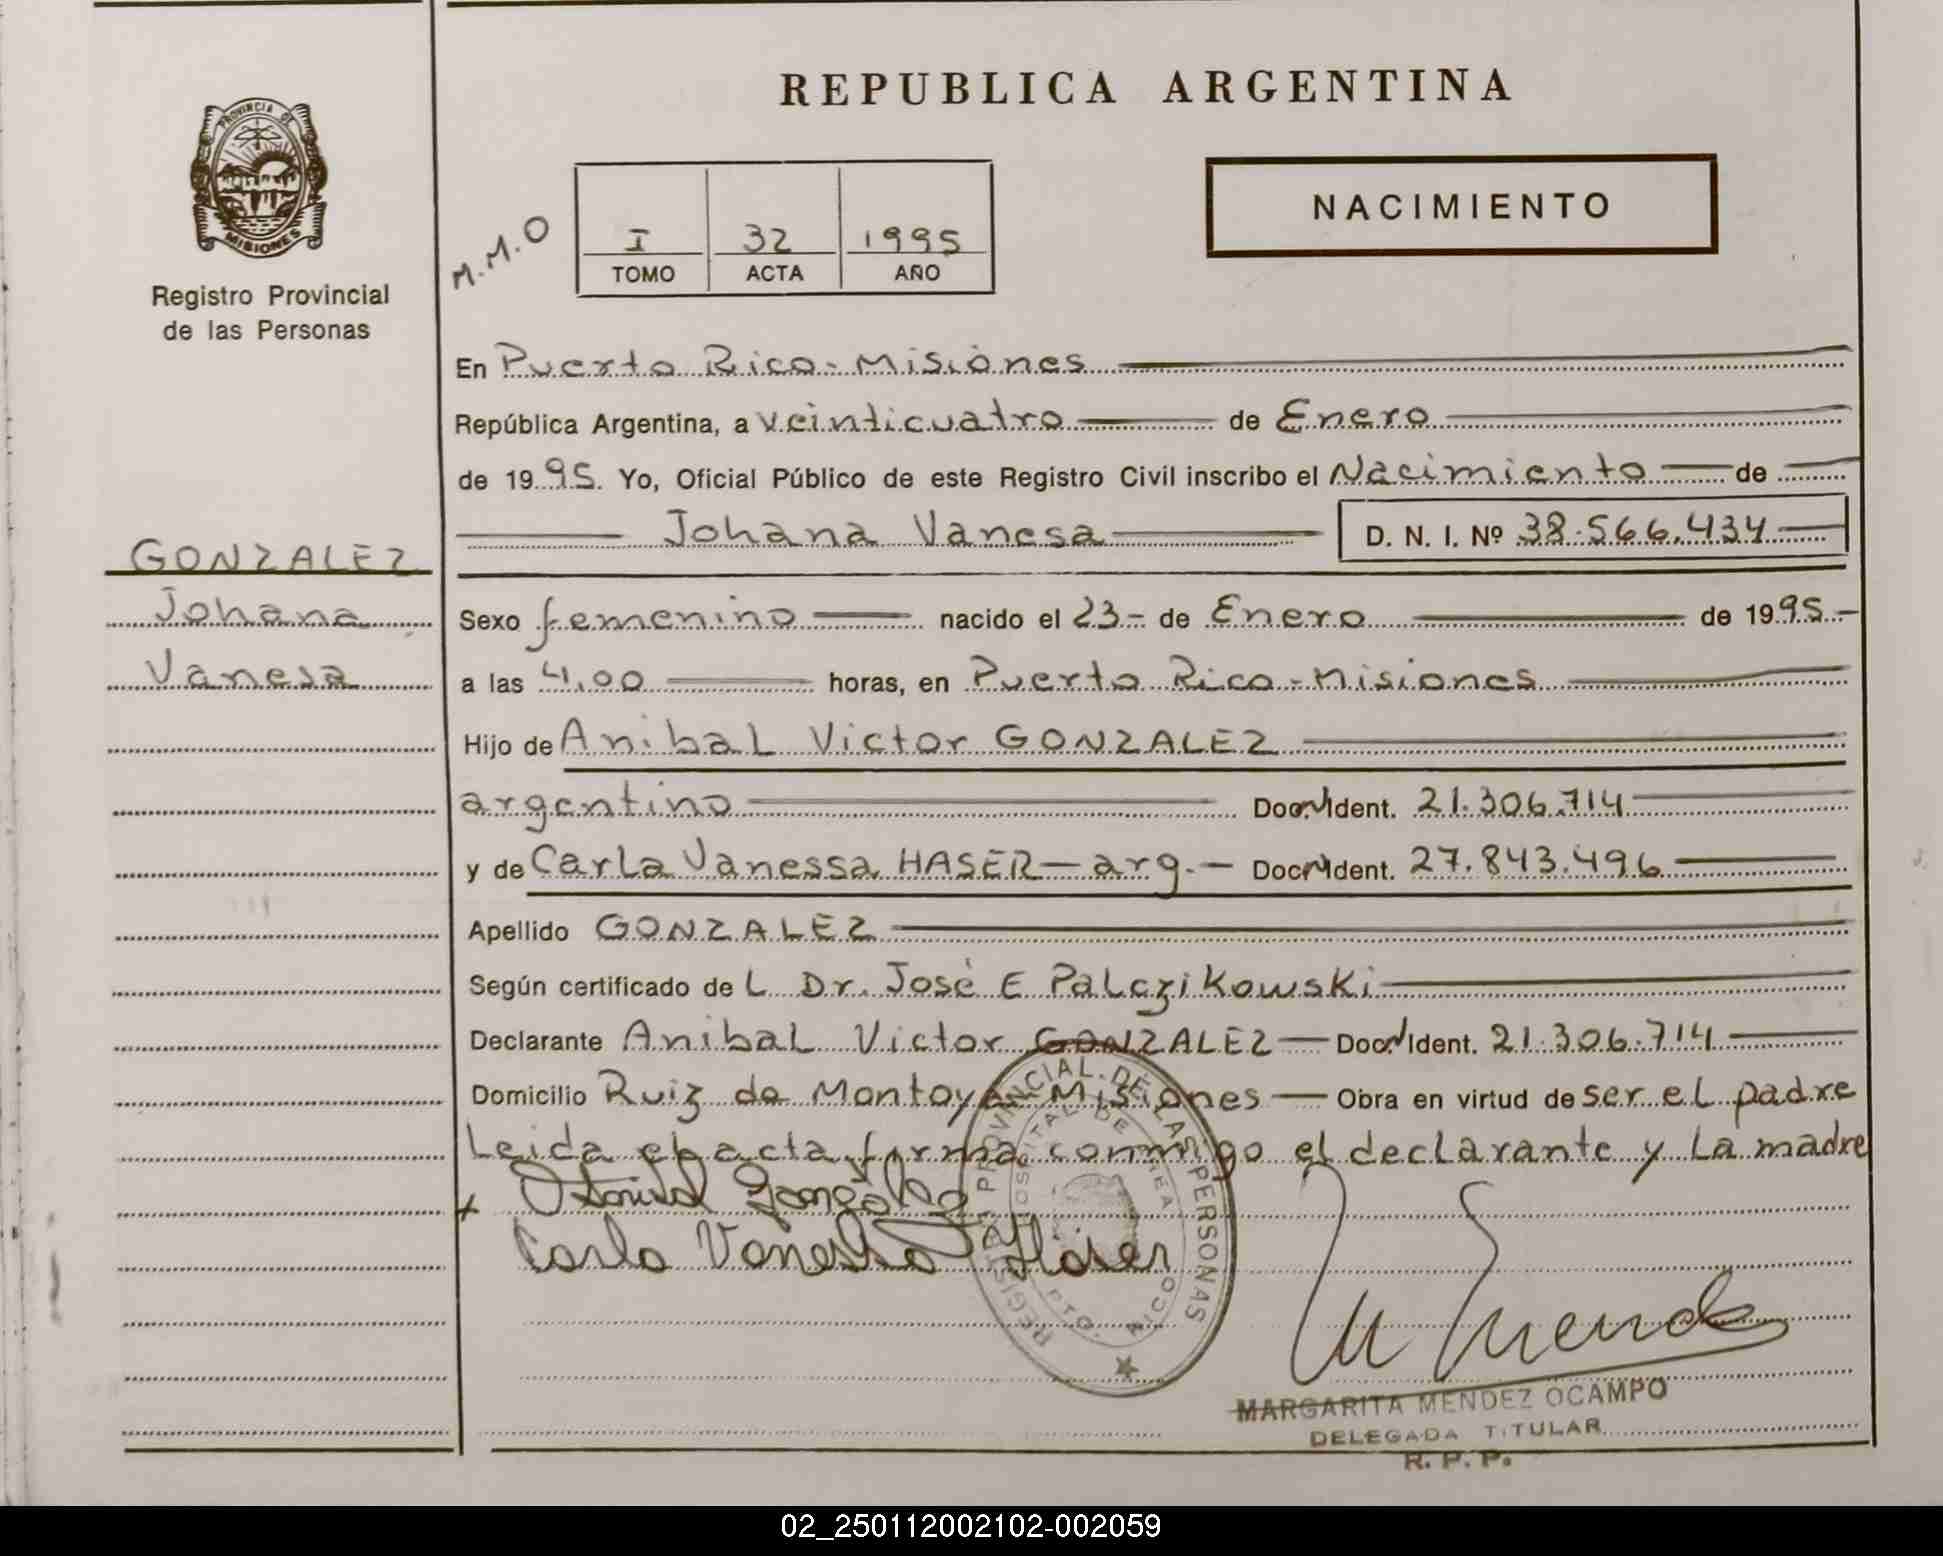 REPUBLICA ARGENTINA
PROVINCIA DE
MISIONES
Registro Provincial
de las Personas
M.M.O
I 32 1995
TOMO ACTA AÑO
NACIMIENTO
En Puerto Rico - Misiones
República Argentina, a veinticuatro de Enero
de 1995. Yo, Oficial Público de este Registro Civil inscribo el Nacimiento de
Johana Vanesa D. N. I. Nº 38.566.434
GONZALEZ
Johana
Vanesa
Sexo femenino nacido el 23- de Enero de 1995.-
a las 4,00 horas, en Puerto Rico - Misiones
Hijo de Anibal Victor GONZALEZ
argentino Doc. Ident. 21.306.714
y de Carla Vanessa HASER - arg. - Doc. Ident. 27.843.496
Apellido GONZALEZ
Según certificado de L Dr. José E Palczikowski
Declarante Anibal Victor GONZALEZ - Doc. Ident. 21.306.714
Domicilio Ruiz de Montoya Misiones - Obra en virtud de ser el padre
Leida el acta firma conmigo el declarante y La madre
Gonzalez
Carla Vanessa Haser
REGISTRO PROVINCIAL DE LAS PERSONAS
HOSPITAL DE AREA
PTO. RICO
MARGARITA MENDEZ OCAMPO
DELEGADA TITULAR
R. P. P.
02_250112002102-002059